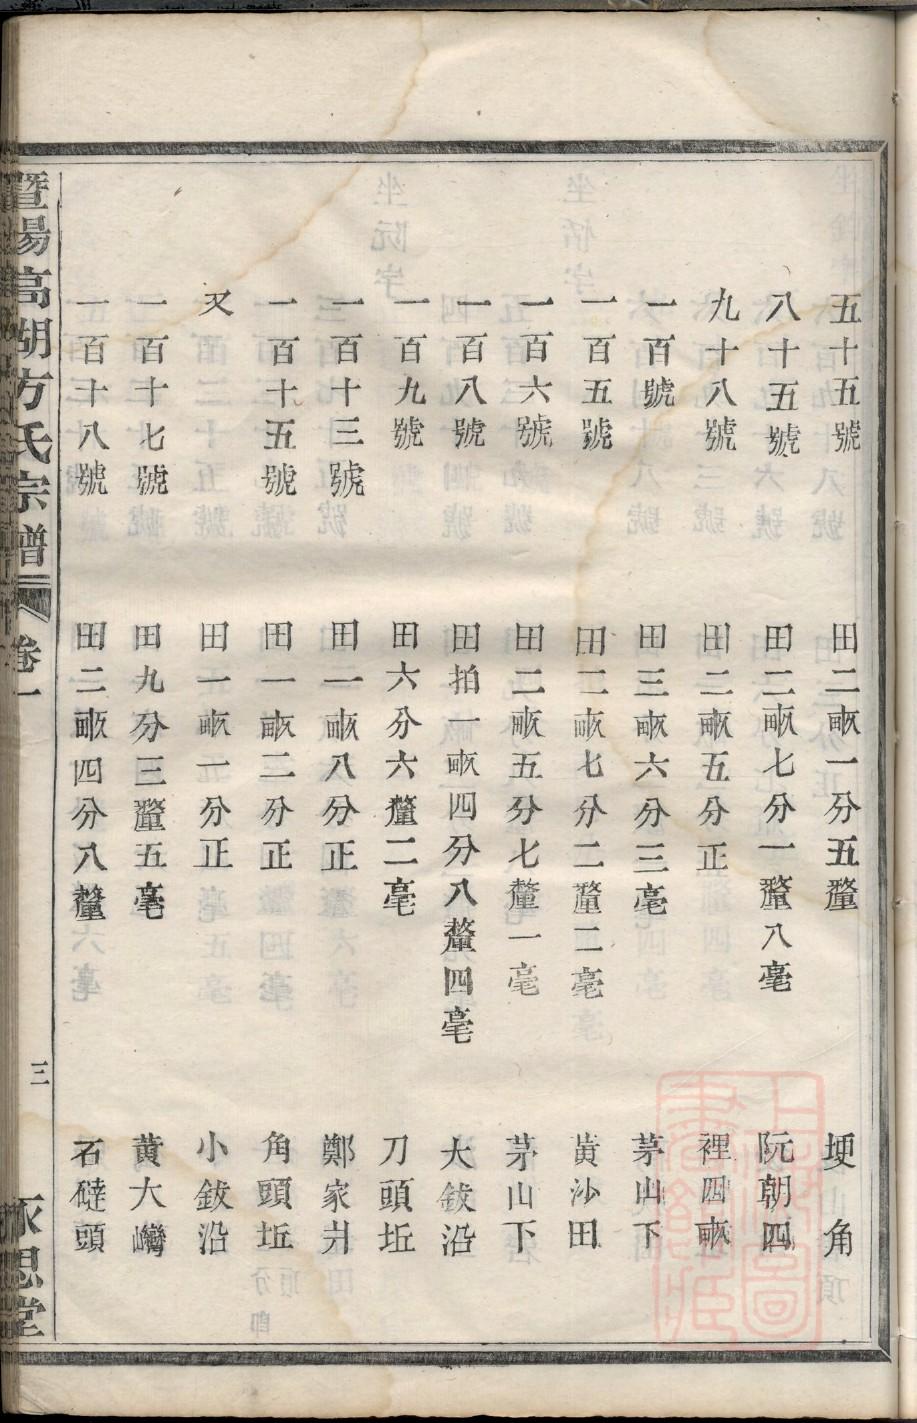 五十五號 田二畝一分五釐 埂角
八十五號 田二畝七分一釐八毫 阮朝四
九十八號 田二畝五分正 裡四畝
一百號 田三畝六分三毫 茅山下
一百五號 田二畝七分二釐二毫 黄沙田
一百六號 田二畝五分七釐一毫 茅山下
一百八號 田拍一畝四分八釐四毫 大鈸沿
一百九號 田六分六釐二毫 刀頭坵
一百十三號 田一畝八分正 鄭家
一百十五號 田一畝二分正 角頭坵
又 田一畝一分正 小鈸沿
一百十七號 田九分三釐五毫 黄大灣
一百十八號 田二畝四分八釐 石磓頭
暨陽高湖方氏宗譜 卷一 三 永思堂